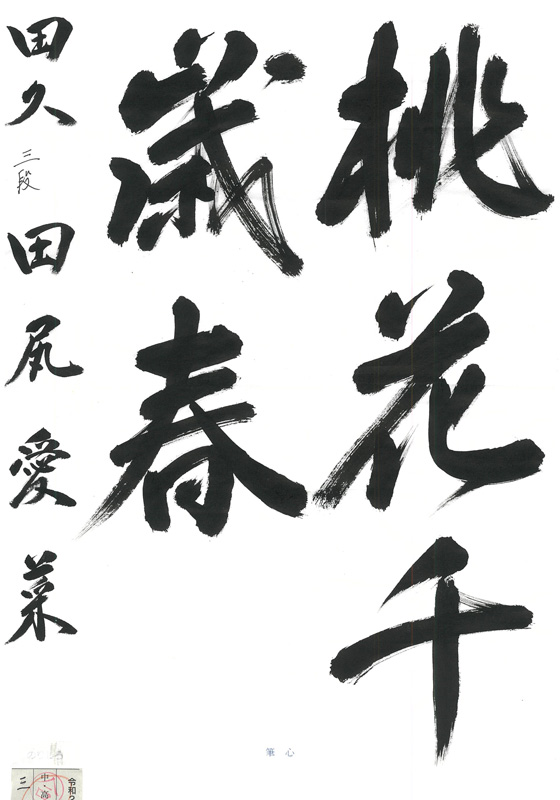 桃花千
歳春
田久 三段 田尻愛菜
心筆
令和
中・高
三